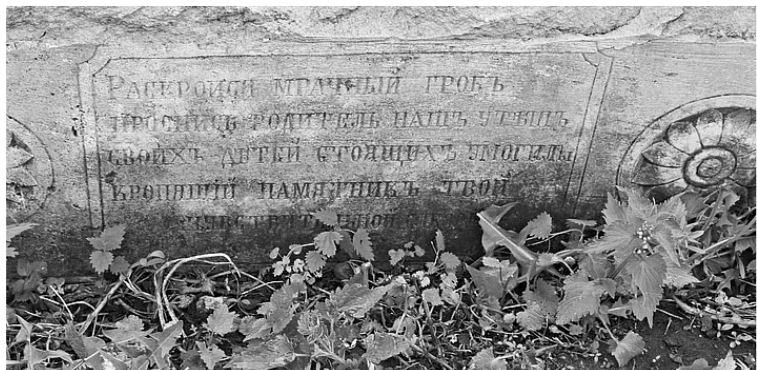 РАСКРОИСИ МРАЧНЫЙ ГРОБЪ
ПРОСНИСЬ РОДИТЕЛЬ НАШЪ УТЕШЬ
СВОИХЪ ДѢТЕЙ СТОЯЩИХЪ УМОГИЛЫ
КРОПЯЩІЙ ПАМЯТНИКЪ ТВОЙ